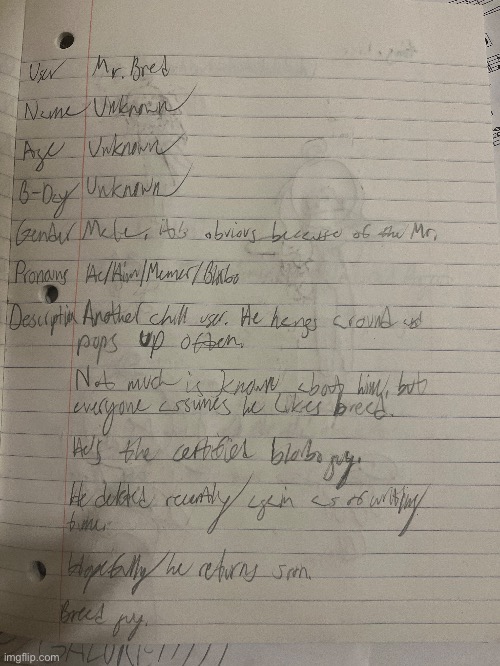 User Mr. Bred
Name Unknown
Age Unknown
B-Day Unknown
Gender Male, it's obvious because of the Mr.
Pronouns He/Him/Memer/Blobo
Description Another chill user. He hangs around and
pops up often.
Not much is known about him, but
everyone assumes he likes breed.
He's the certified blobo guy.
He deleted recently/again as of writing
time.
Hopefully he returns soon.
Breed guy.
imgflip.com